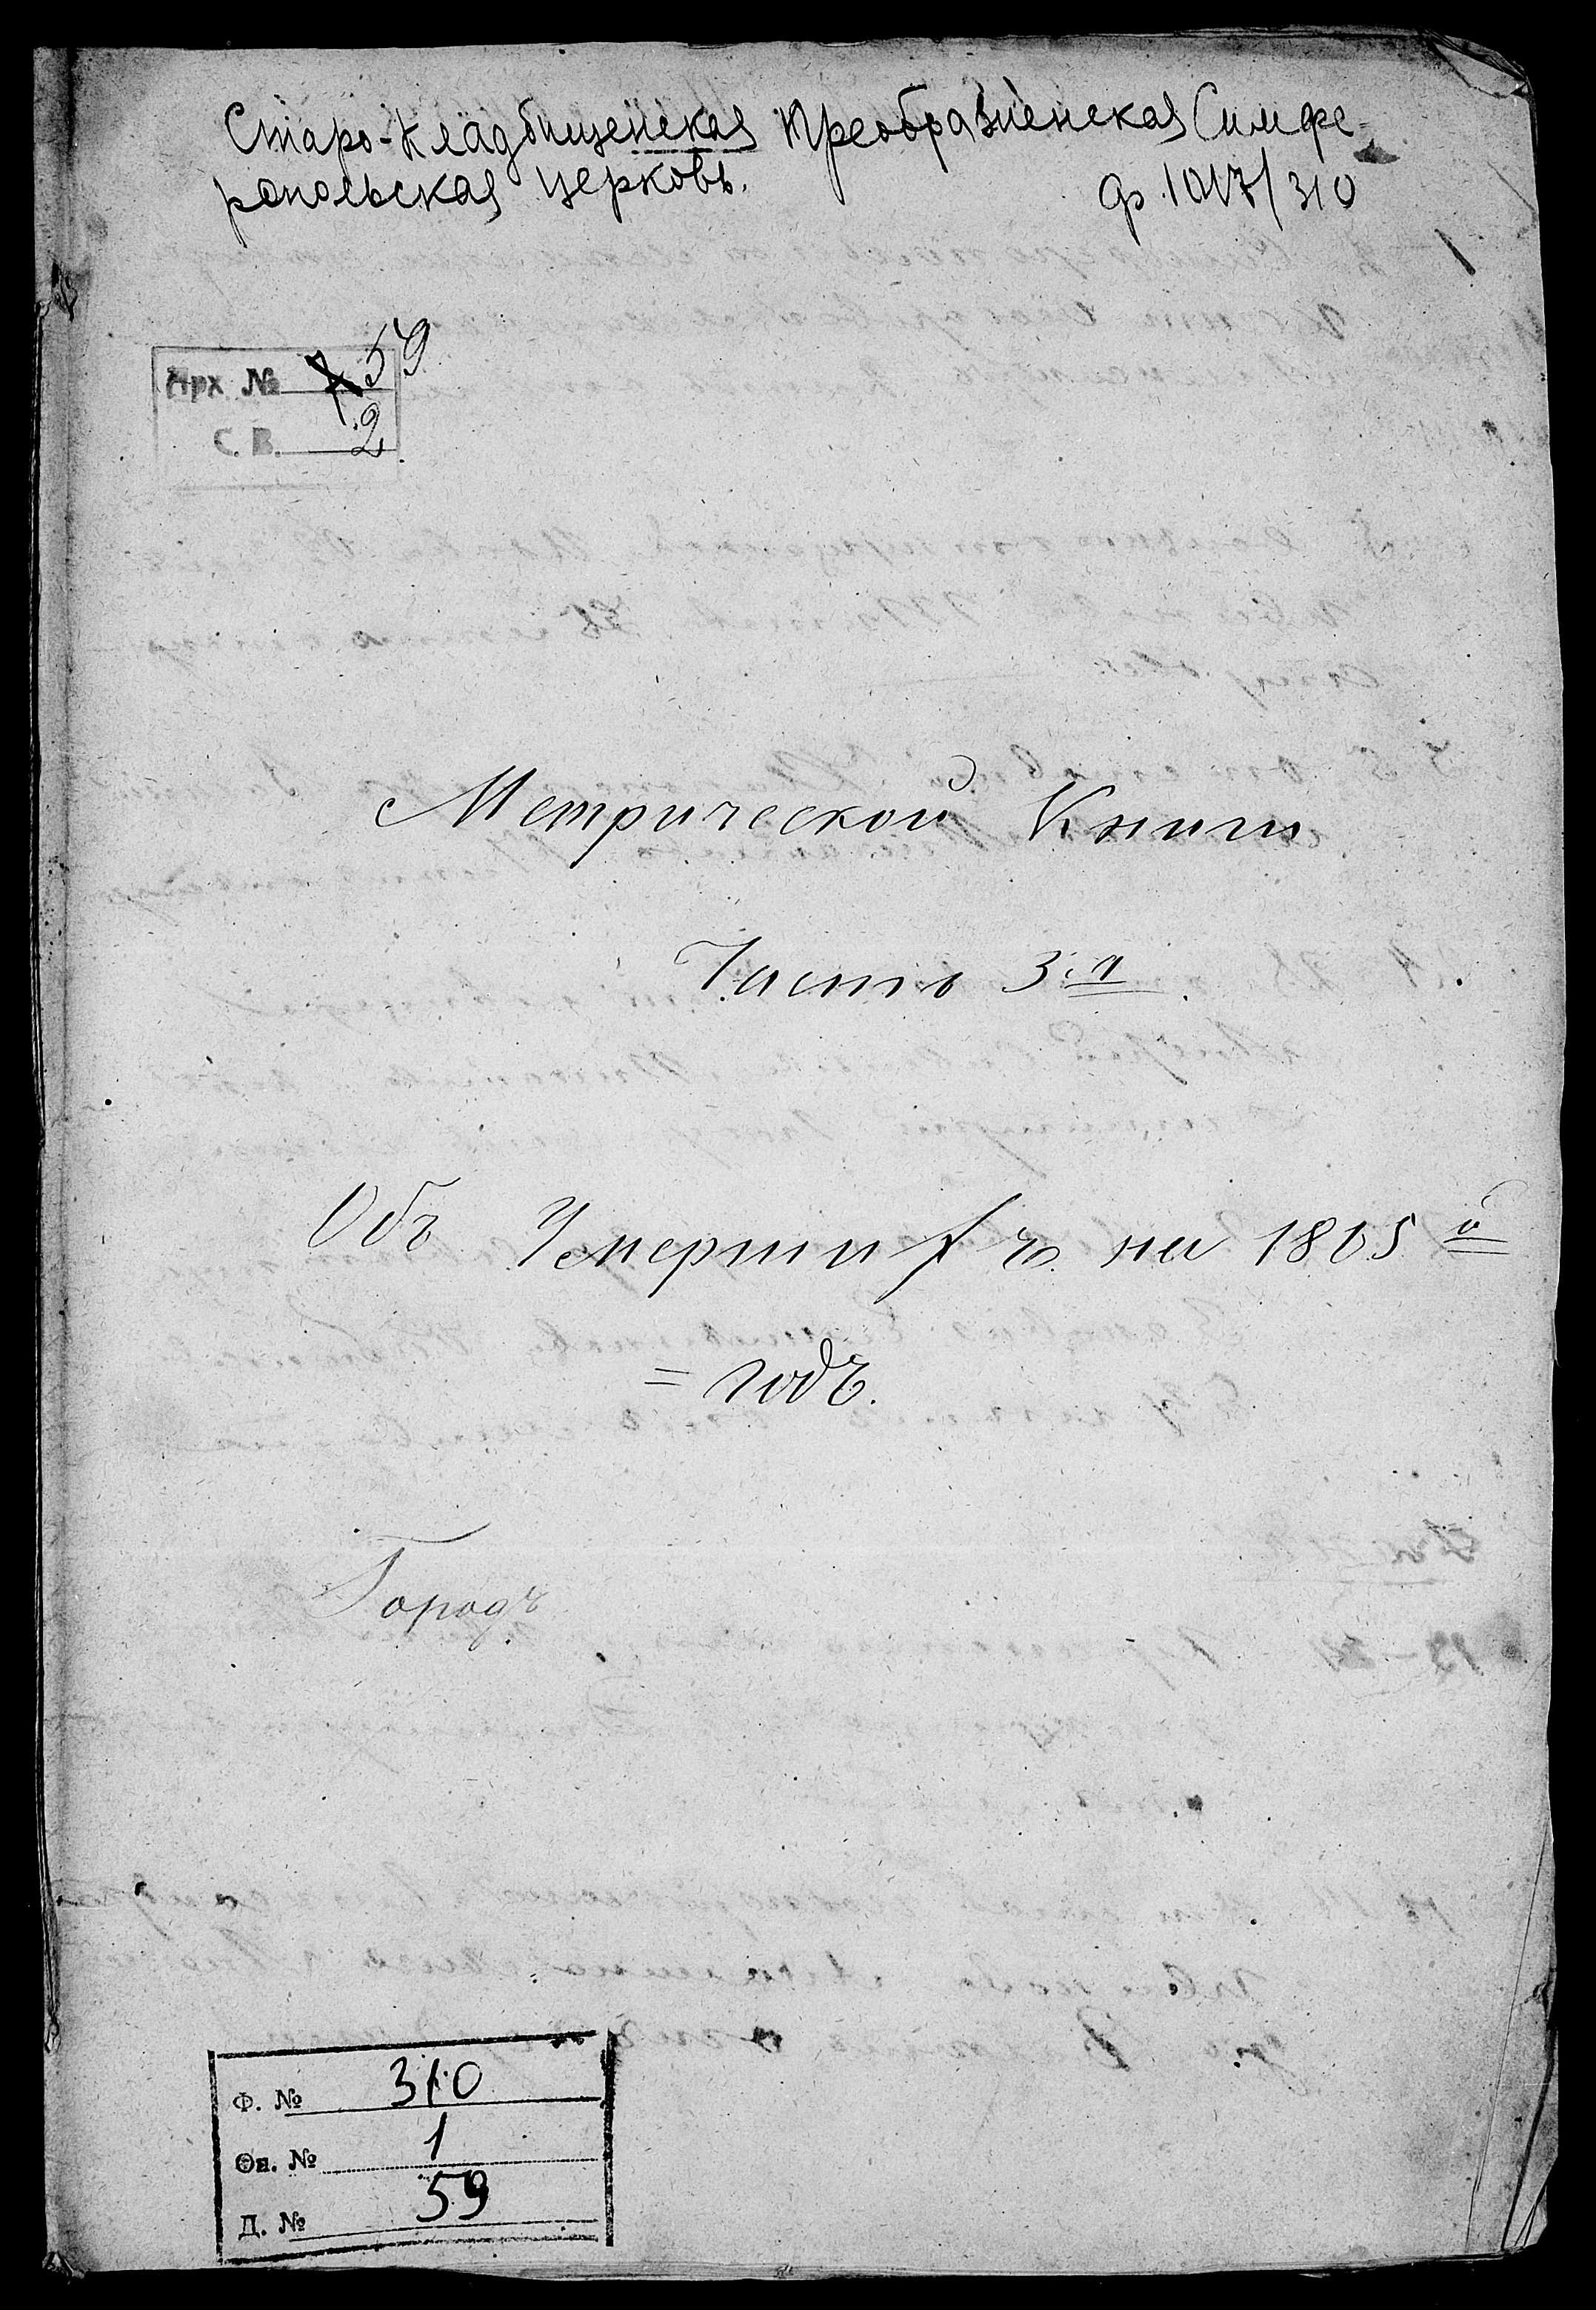 Старо-кладбищенская Преображенская Симфе-
ропольская церковь.
ф. 1017/310
1
Арх № 59
С. В. 2
Метрической Книги
Часть 3.я
Объ Умершихъ на 1865й
= годъ.
Городъ
Ф. № 310
Оп. № 1
Д. № 59